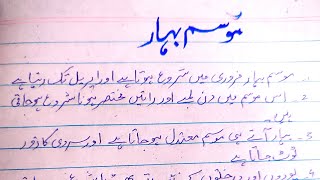 موسم بہار
1. موسم بہار فروری میں شروع ہوتا ہے اور اپریل تک رہتا ہے
2. اس موسم میں دن لمبے اور راتیں مختصر ہونا شروع ہوجاتی
ہیں
3۔ بہار آتے ہی موسم معتدل ہوجاتا ہے اور سردی کا زور
ٹوٹ جاتا ہے
4۔ پودوں اور درختوں